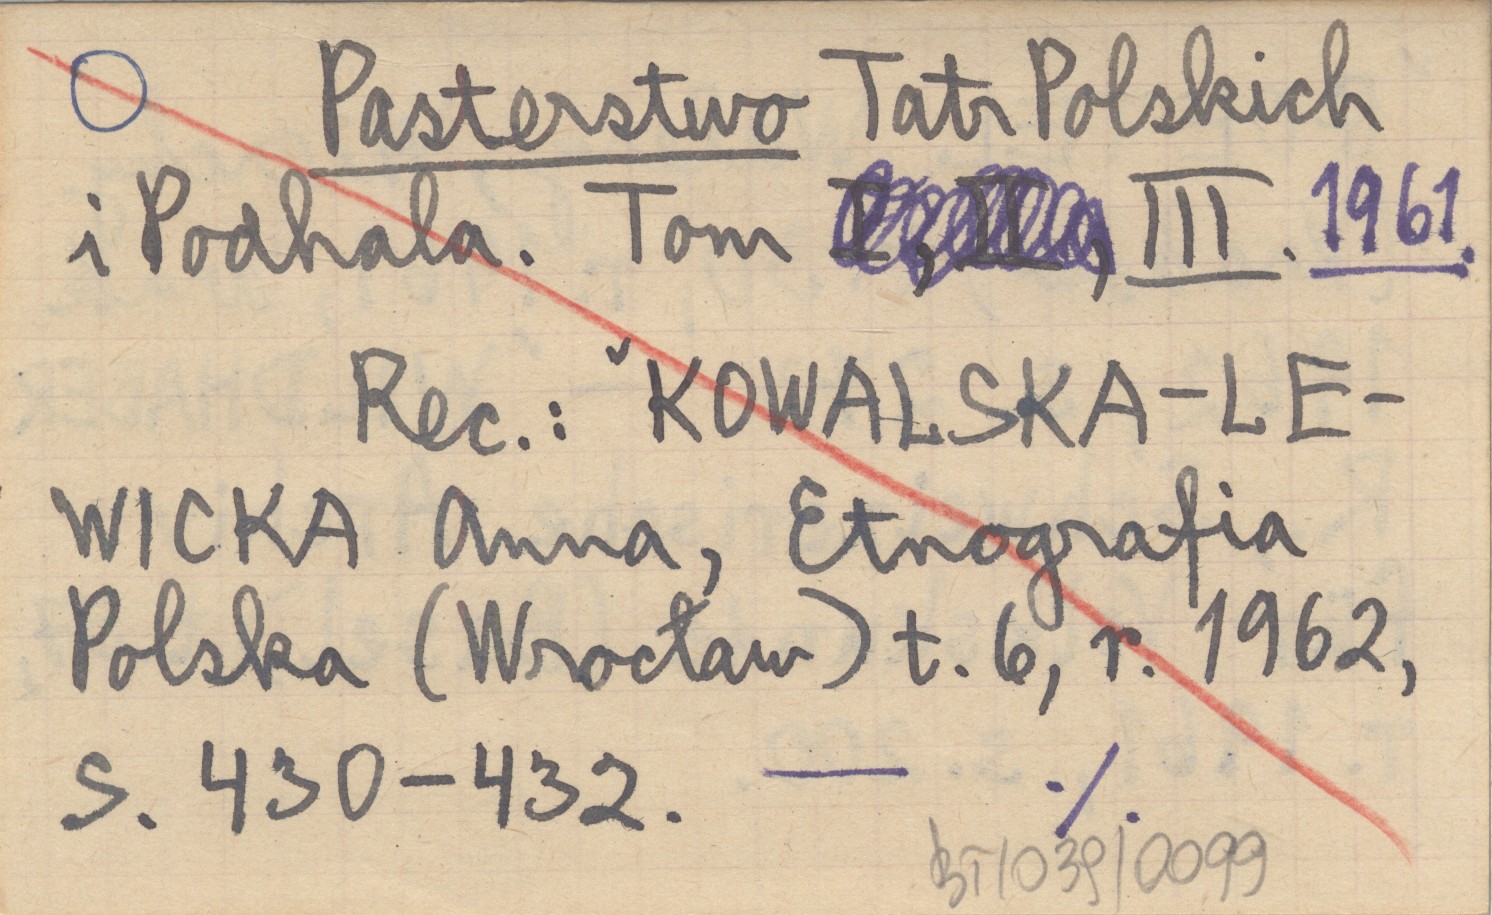 Pasterstwo Tatr Polskich
i Podhala. Tom I, II, III. 1961.
Rec.: KOWALSKA-LE-
WICKA Anna, Etnografia
Polska (Wrocław) t. 6, r. 1962,
s. 430-432. — ./.
BT/039/0099